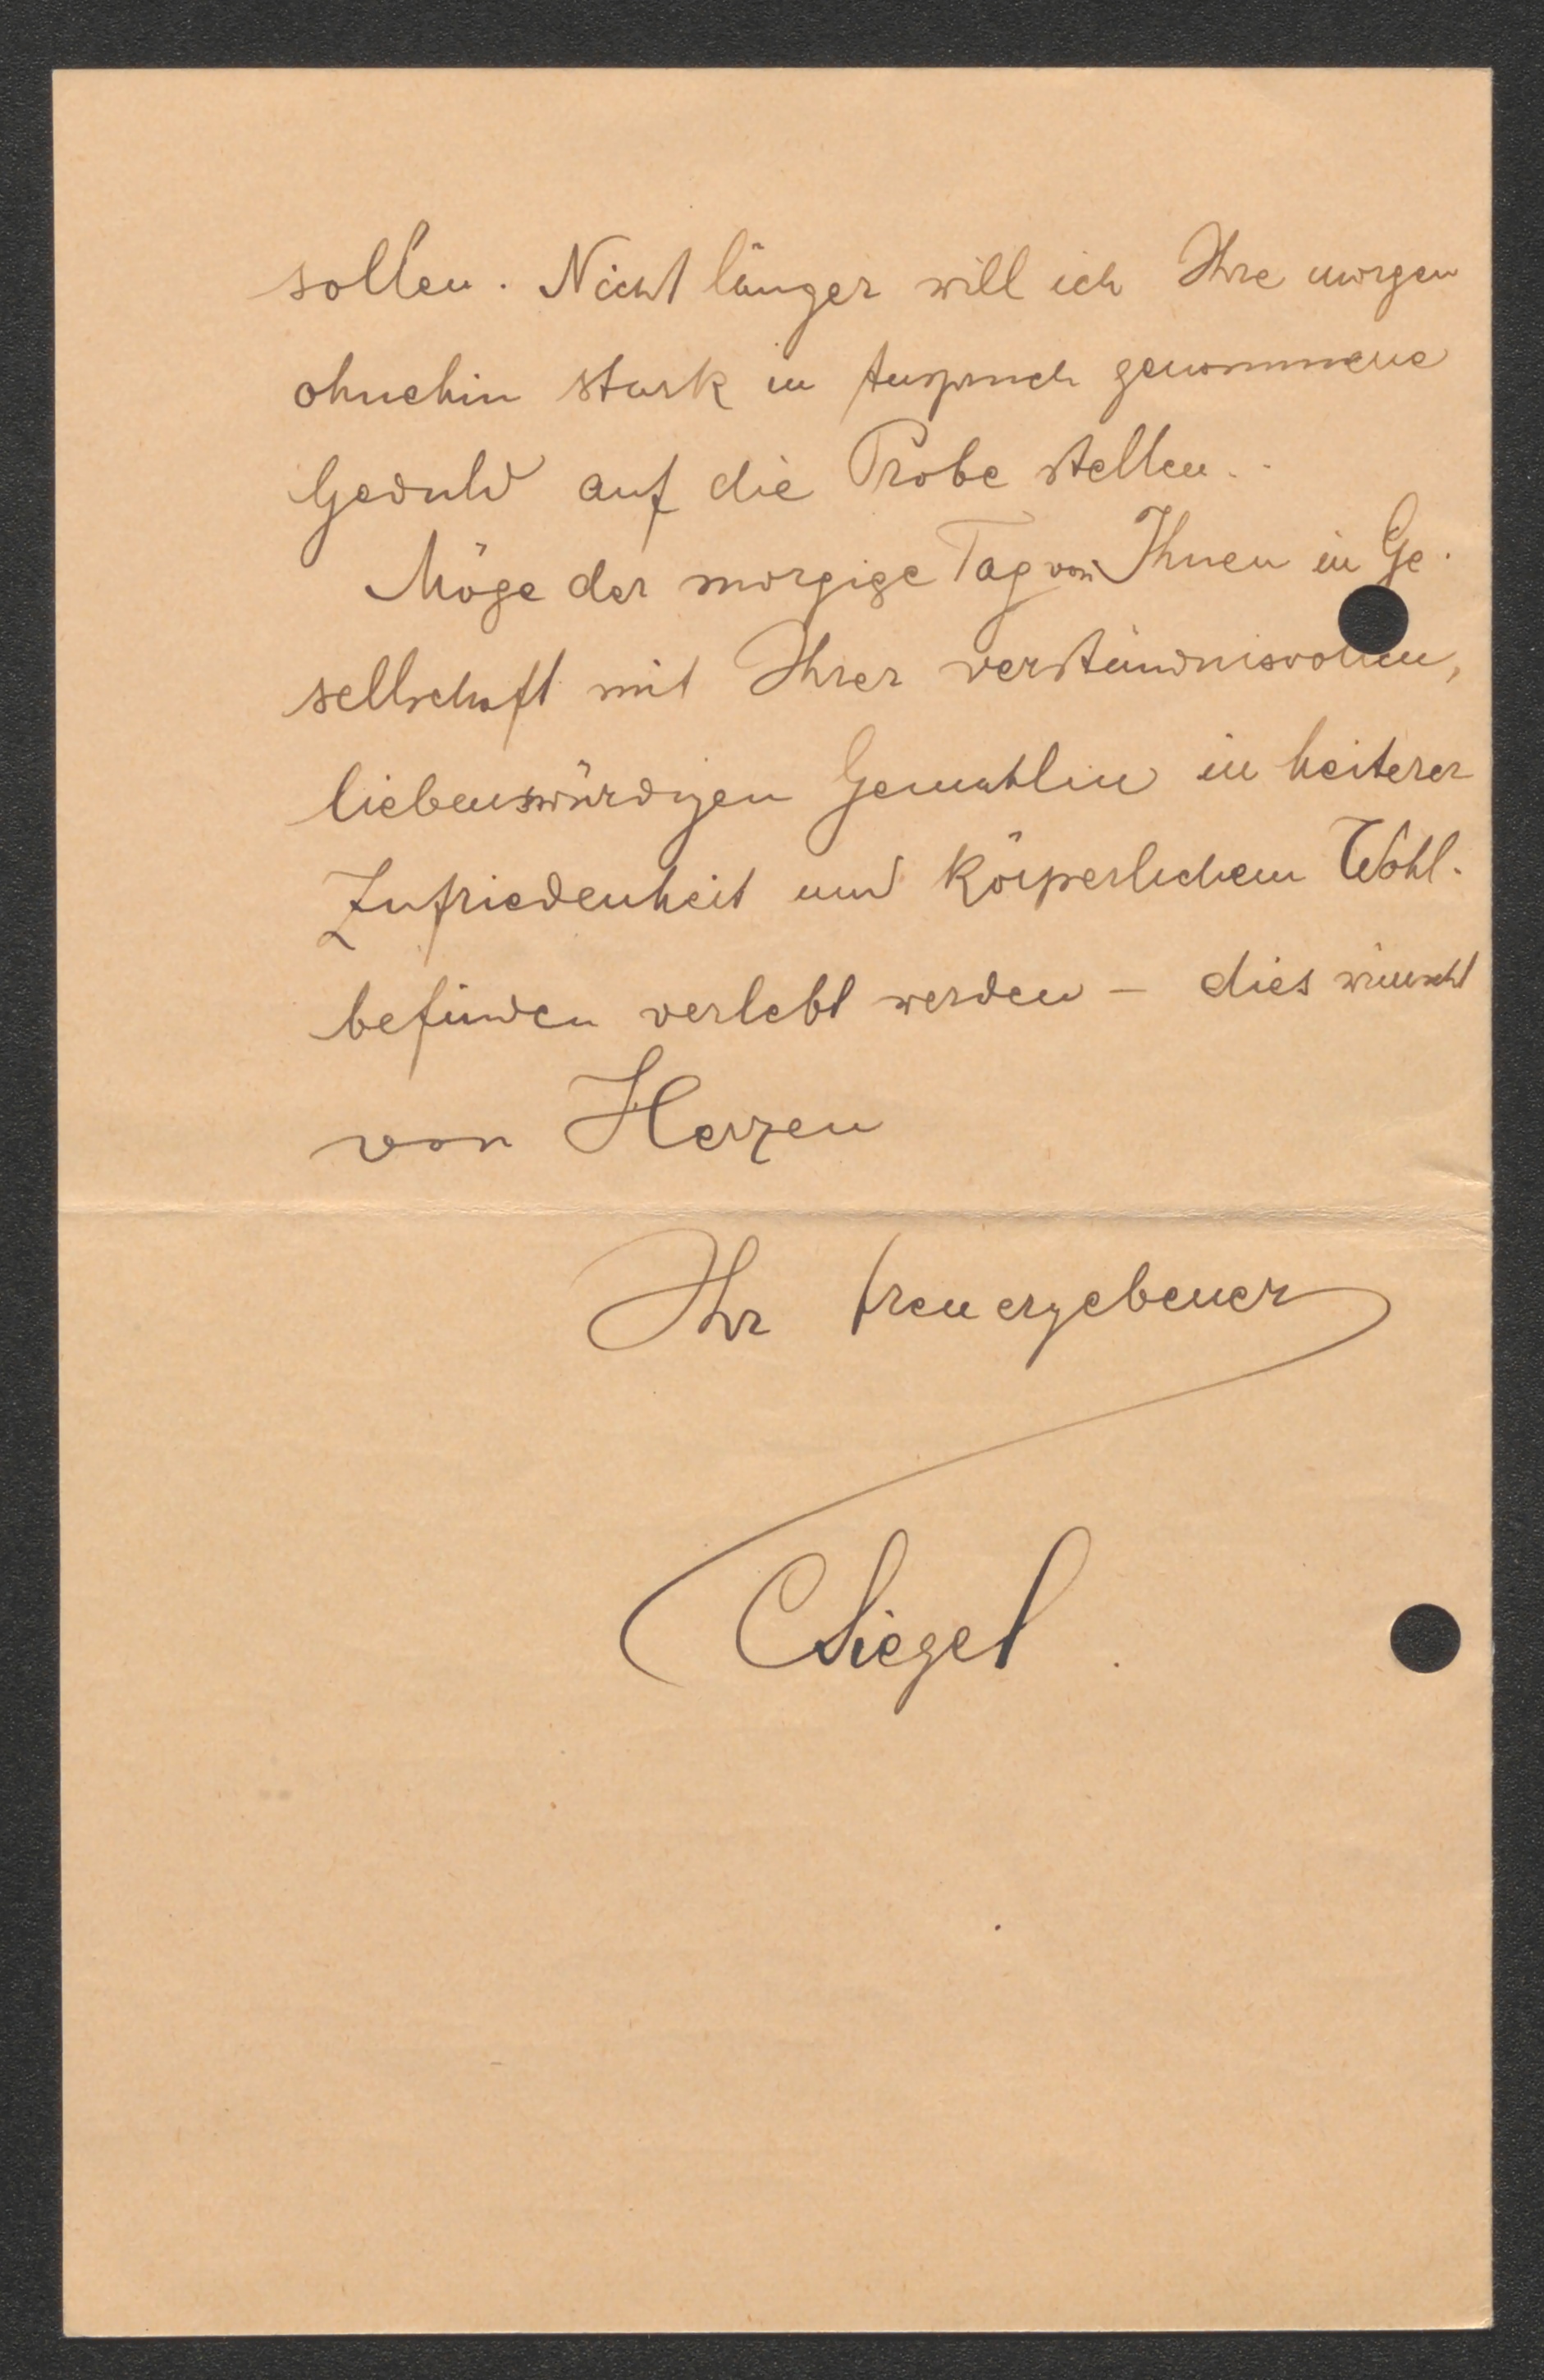 sollen. Nicht länger will ich Ihre morgen
ohnehin stark in Anspruch genommene
Geduld auf die Probe stellen.
Möge der morgige Tag von Ihnen in Ge-
sellschaft mit Ihrer verständnisvollen,
liebenswürdigen Gemahlin in heiterer
Zufriedenheit und körperlichem Wohl-
befinden verlebt werden – dies wünscht
von Herzen
Ihr treuergebener
CSiegel.